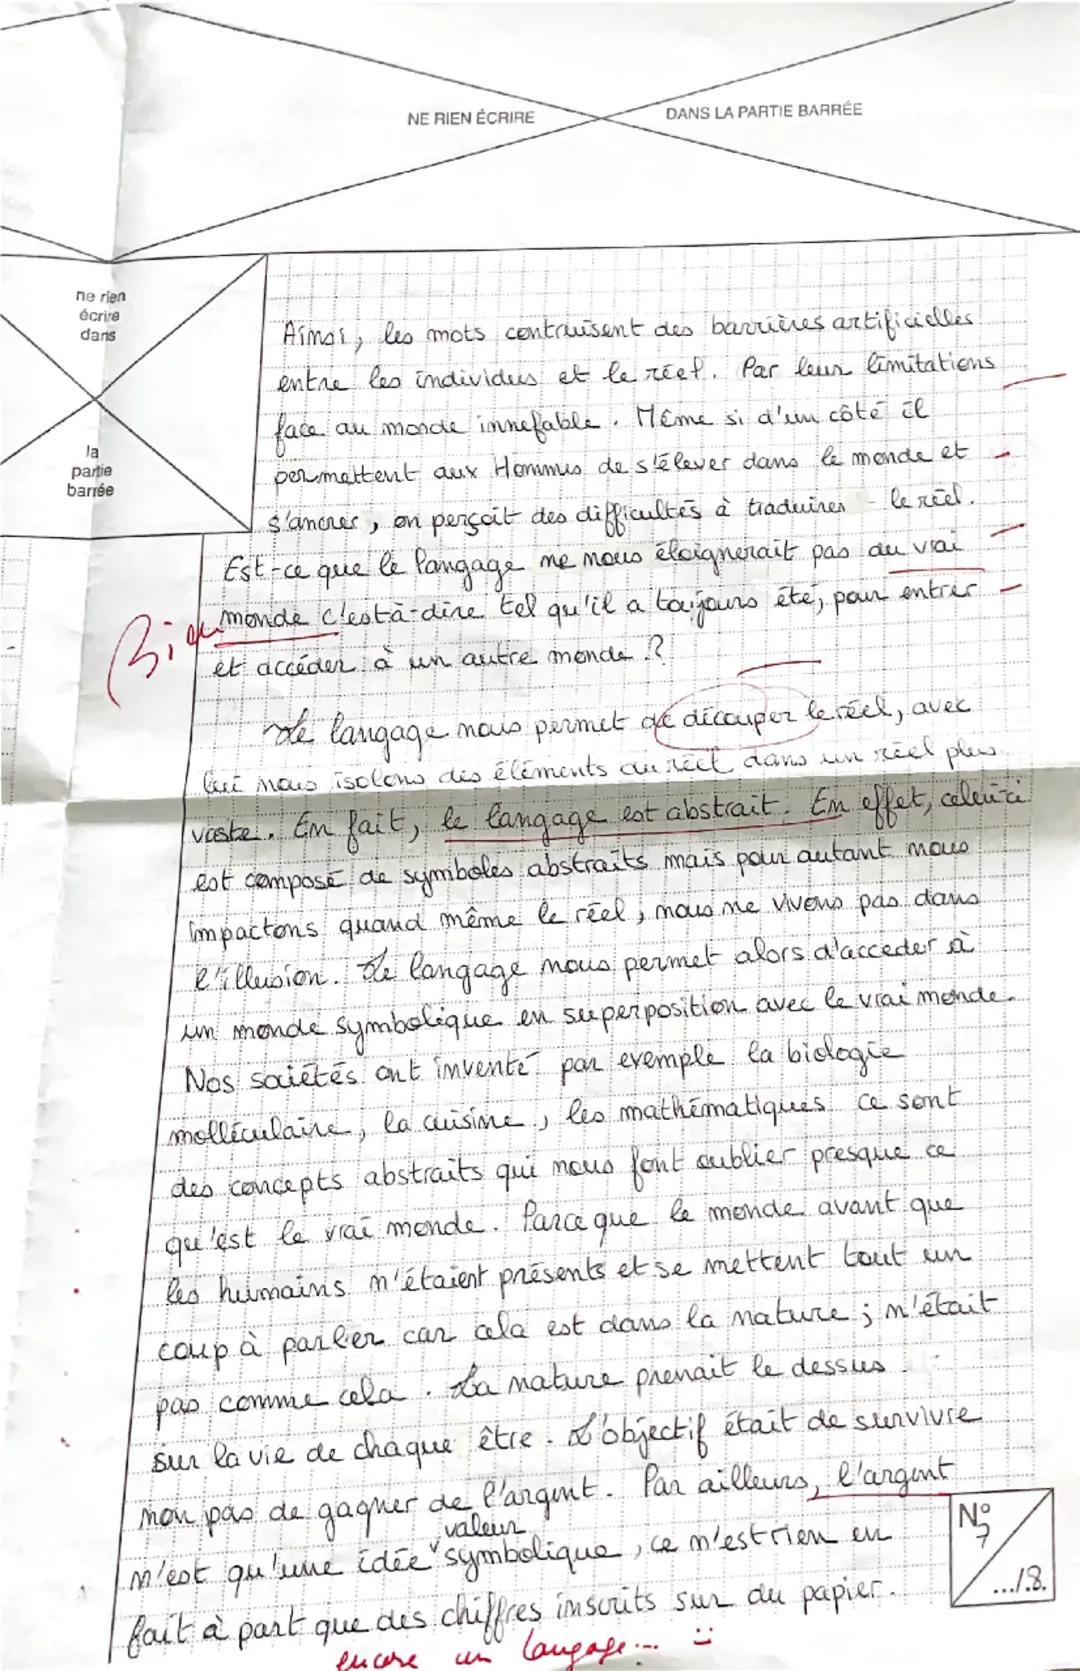 NE RIEN ÉCRIRE
DANS LA PARTIE BARRÉE
ne rien
écrire
dans
la
partie
barrée
Ainsi, les mots contruisent des barrières artificielles
entre les individus et le réel. Par leur limitations
face au monde innefable. Même si d'un côté il
permettent aux Hommes de s'élever dans le monde et
s'ancrer, on perçoit des difficultés à traduires le réel.
Est-ce que le langage ne nous éloignerait pas du vrai
monde c'est à-dire tel qu'il a toujours été, pour entrer
et accéder à un autre monde ?
Bien
Le langage nous permet de découper le réel, avec
lui nous isolons des éléments du réel dans un réel plus
vaste. En fait, le langage est abstrait. En effet, celui-ci
est composé de symboles abstraits mais pour autant nous
impactons quand même le réel, nous ne vivons pas dans
l'illusion. Le langage nous permet alors d'acceder à
un monde symbolique en superposition avec le vrai monde.
Nos sociétés ont inventé par exemple la biologie
molléculaire, la cuisine, les mathématiques ce sont
des concepts abstraits qui nous font oublier presque ce
qu'est le vrai monde. Parce que le monde avant que
les humains n'étaient présents et se mettent tout un
coup à parler car cela est dans la nature ; n'était
pas comme cela. La nature prenait le dessus
sur la vie de chaque être. L'objectif était de survivre
non pas de gagner de l'argent. Par ailleurs, l'argent
valeur
n'est qu'une idée symbolique, ce n'est rien en
fait à part que des chiffres inscrits sur du papier.
encore un langage... :-
N°
7
.../8.